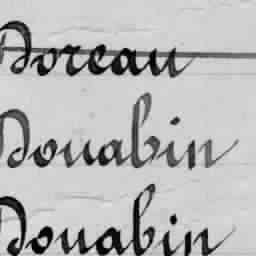 Doreau
Douabin
Douabin